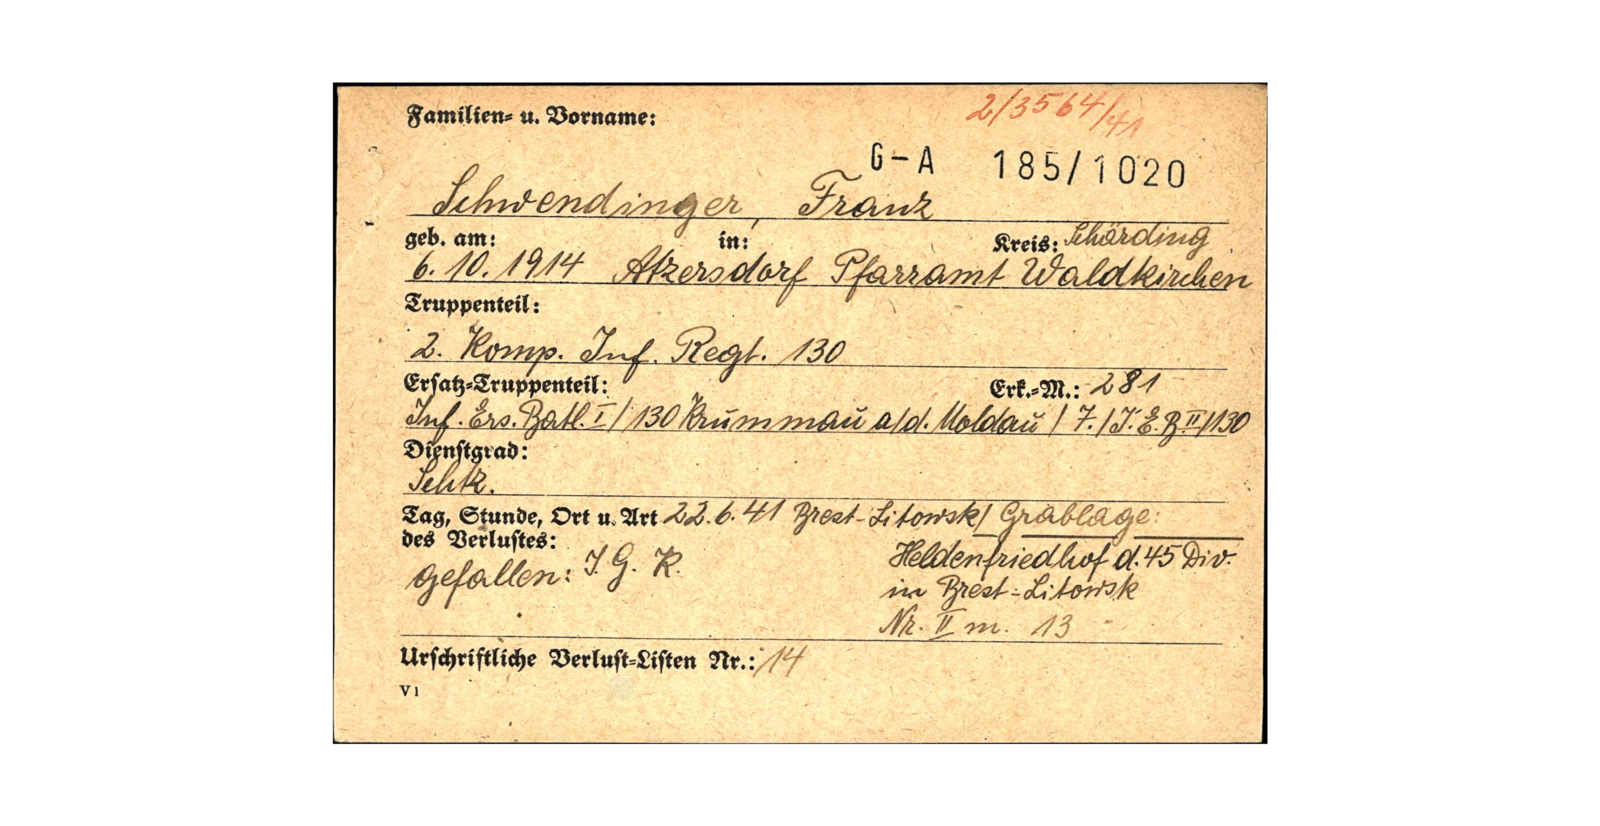 Familien- u. Vorname:
2/3564/41
G-A 185/1020
Schwendinger, Franz
geb. am: in: Kreis: Schärding
6.10.1914 Atzersdorf Pfarramt Waldkirchen
Truppenteil:
2. Komp. Inf. Regt. 130
Ersatz-Truppenteil: Erk.-M.: 281
Inf. Ers. Batl. I/130 Krummau a/d. Moldau / 7./I.E.B.II/130
Dienstgrad:
Schtz.
Tag, Stunde, Ort u. Art 22.6.41 Brest-Litowsk/ Grablage:
des Verlustes:
gefallen: I.G.K.
Heldenfriedhof d. 45 Div.
in Brest-Litowsk
Nr. II m. 13
Urschriftliche Verlust-Listen Nr.: 14
V 1